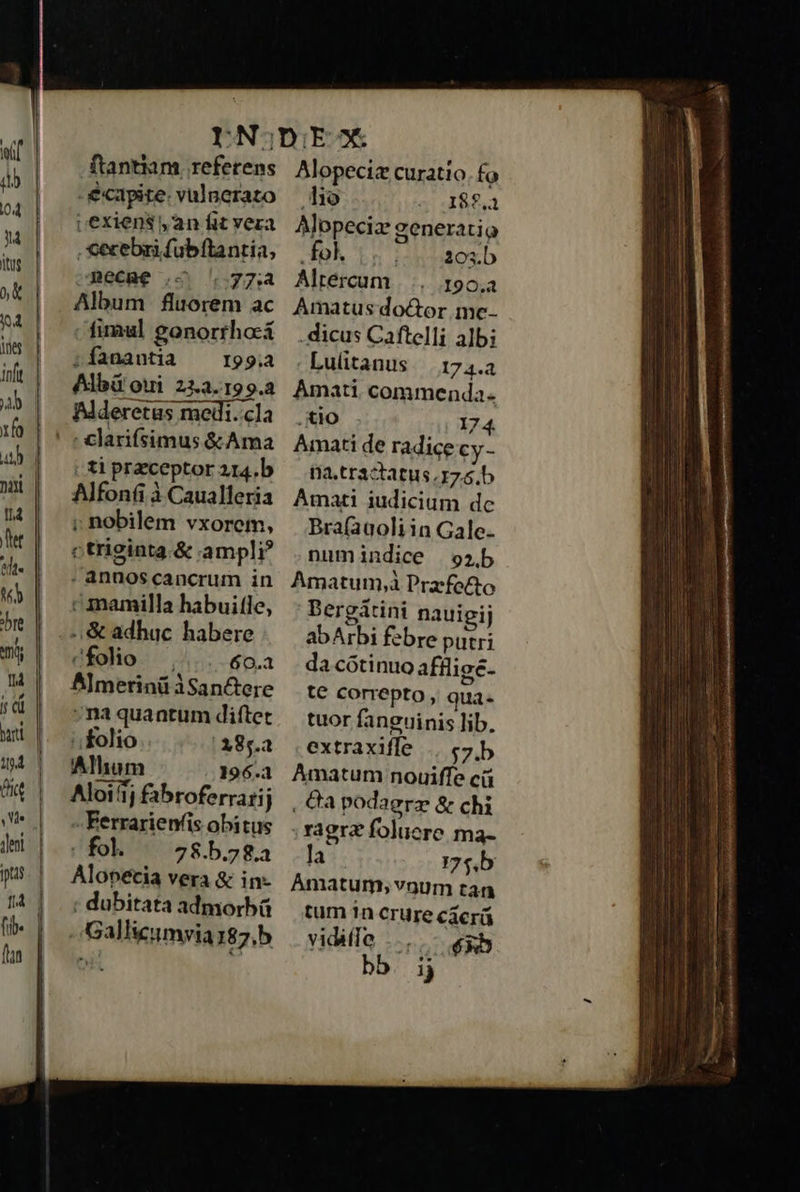 INDEX
ſtantiam referens
é capite vulnerato
exiens, an ſit vera
cerebri ſubſtantia,
necne 77.a
Album fluorem ac
ſimul gonorrhoeá
ſanantia 199.a
Albū oui 23.a.199.a
Alderetus medi. cla
clariſsimus & Ama
ti præceptor 214.b
Alfonſi à Caualleria
nobilem vxorem,
triginta & ampli⁹
annos cancrum in
mamilla habuiſſe,
& adhuc habere
folio 60.a
Almerinū à Sanctere
na quantum diſtet
folio 285.a
Allium 196.a
Aloiſij fabroferrarij
Ferrarienſis obitus
fol. 78.b.78.a
Alopecia vera & in-
dubitata ad morbū
Gallicum via 187.b
Alopeciæ curatio. fo
lio 188.a
Alopeciæ generatio
fol. 203.b
Altercum 190.a
Amatus doctor me-
dicus Caſtelli albi
Luſitanus 174.a
Amati commenda-
tio 174
Amati de radice cy-
na tractatus. 176.b
Amati iudicium de
Braſauoli in Gale-
num indice 92.b
Amatum, à Præfecto
Bergátini nauigij
ab Arbi febre putri
da cōtinuo afflige-
te correpto, qua-
tuor ſanguinis lib.
extraxiſſe 57.b
Amatum nouiſſe cū
cta podagræ & chi
ragræ ſoluere ma-
la 175.b
Amatum, vnum tan
tum in crure cácrū
vidiſſe 61.b
bb ij